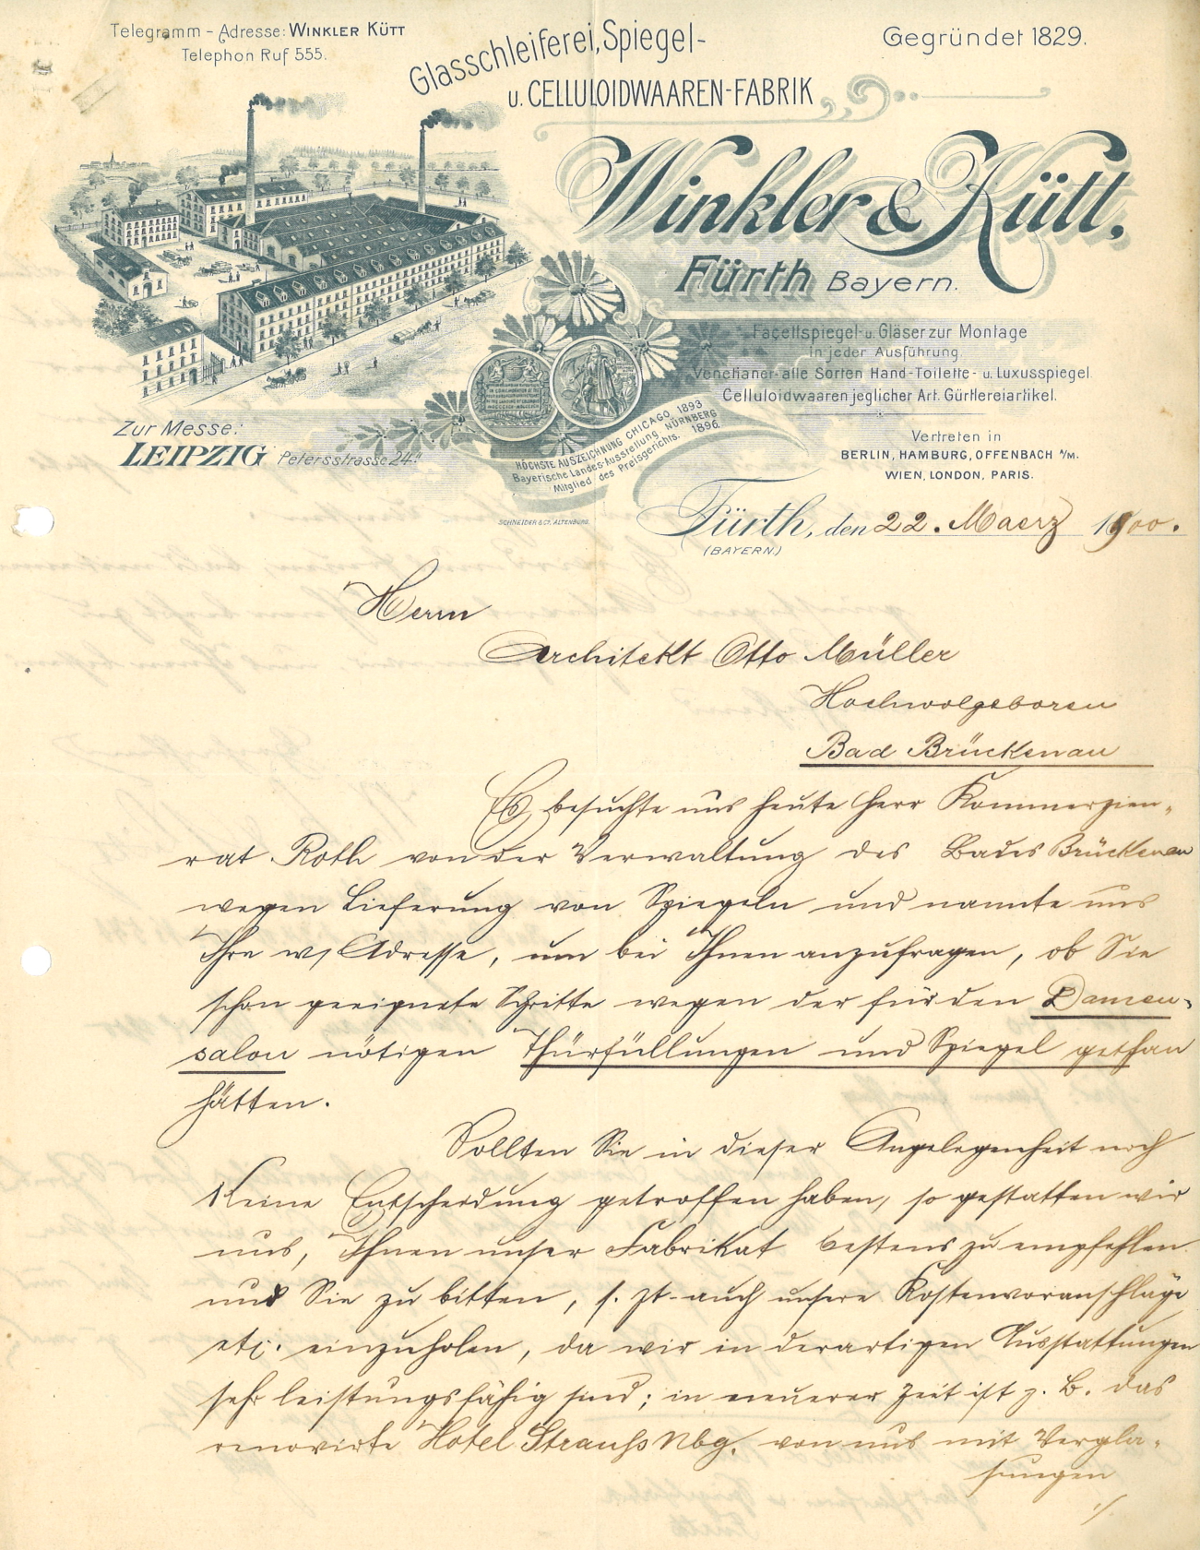 Telegramm - Adresse: WINKLER KÜTT
Telephon Ruf 555.
Glasschleiferei, Spiegel-
u. CELLULOIDWAAREN-FABRIK
Gegründet 1829.
Winkler & Kütt,
Fürth Bayern.
Facettspiegel- u. Gläser zur Montage
in jeder Ausführung.
Venetianer- alle Sorten Hand-Toilette- u. Luxusspiegel
Celluloidwaaren jeglicher Art. Gürtlereiartikel.
HÖCHSTE AUSZEICHNUNG CHICAGO 1893
Bayerische Landes-Ausstellung, NÜRNBERG
Mitglied des Preisgerichts. 1896
Zur Messe:
LEIPZIG Petersstrasse 24.II
Vertreten in
BERLIN, HAMBURG, OFFENBACH a/M.
WIEN, LONDON, PARIS.
SCHNEIDER & CO. ALTENBURG.
Fürth, den 22. Maerz 1900.
(BAYERN.)
Herrn
Architekt Otto Müller
Hochwolgeboren
Bad Brückenau
Es besuchte uns heute Herr Kommerzien-
rat Roth von der Verwaltung des Bades Brückenau
wegen Lieferung von Spiegeln und nannte uns
Ihre w/ Adresse, um bei Ihnen anzufragen, ob Sie
schon geeignete Schritte wegen der für den Damen-
salon nötigen Thürfüllungen und Spiegel gethan
hätten.
Sollten Sie in dieser Angelegenheit noch
Keine Entscheidung getroffen haben, so gestatten wir
uns, Ihnen unser Fabrikat bestens zu empfehlen
und Sie zu bitten, s. Zt. auch unsere Kostenvoranschläge
etc. einzuholen, da wir in derartigen Ausstattungen
sehr leistungsfähig sind; in neuerer Zeit ist z. B. das
renovirte Hotel Strauss Nbg. von uns mit Vergla-
sungen
./.